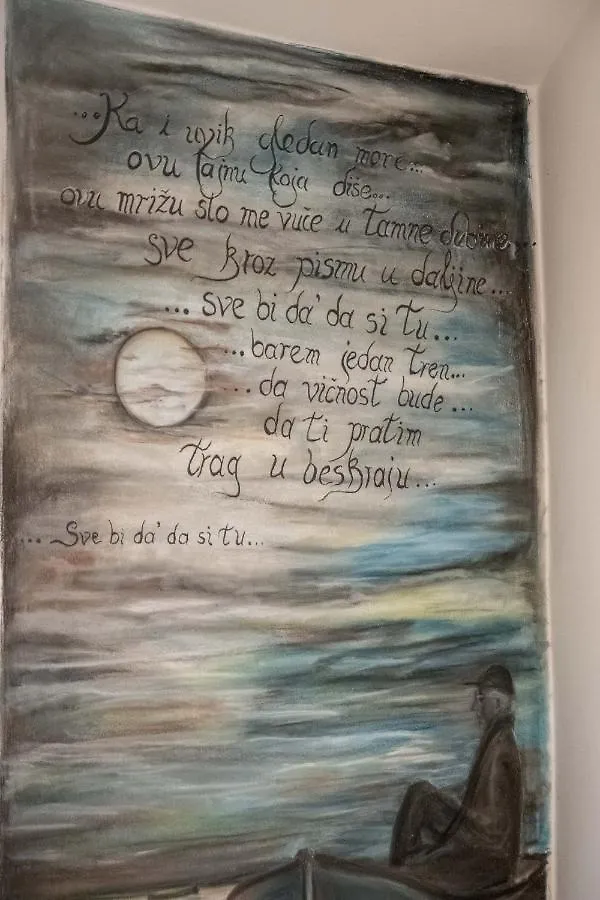 ...Ka i uvik gledan more...
ovu tajnu koja diše...
ovu mrižu što me vuče u tamne dubine...
sve kroz pismu u daljine...
... sve bi da' da si tu...
...barem jedan tren...
...da vičnost bude...
da ti pratim
trag u beskraju...
... Sve bi da' da si tu...